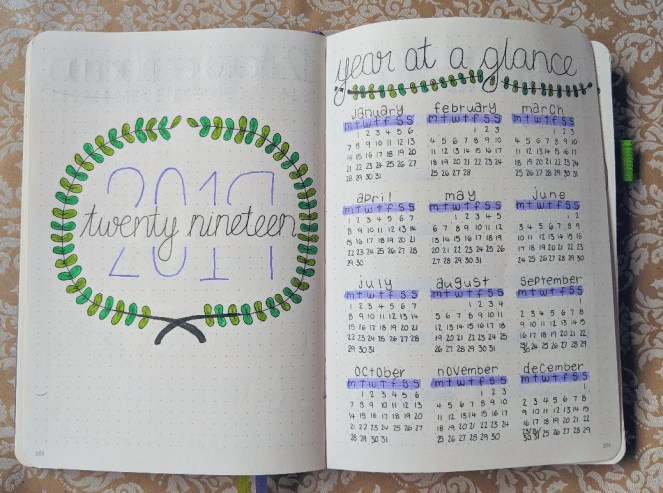 2019
twenty nineteen
year at a glance
january
m t w t f s s
1 2 3 4 5 6
7 8 9 10 11 12 13
14 15 16 17 18 19 20
21 22 23 24 25 26 27
28 29 30 31
february
m t w t f s s
1 2 3
4 5 6 7 8 9 10
11 12 13 14 15 16 17
18 19 20 21 22 23 24
25 26 27 28
march
m t w t f s s
1 2 3
4 5 6 7 8 9 10
11 12 13 14 15 16 17
18 19 20 21 22 23 24
25 26 27 28 29 30 31
april
m t w t f s s
1 2 3 4 5 6 7
8 9 10 11 12 13 14
15 16 17 18 19 20 21
22 23 24 25 26 27 28
29 30
may
m t w t f s s
1 2 3 4 5
6 7 8 9 10 11 12
13 14 15 16 17 18 19
20 21 22 23 24 25 26
27 28 29 30 31
june
m t w t f s s
1 2
3 4 5 6 7 8 9
10 11 12 13 14 15 16
17 18 19 20 21 22 23
24 25 26 27 28 29 30
july
m t w t f s s
1 2 3 4 5 6 7
8 9 10 11 12 13 14
15 16 17 18 19 20 21
22 23 24 25 26 27 28
29 30 31
august
m t w t f s s
1 2 3 4
5 6 7 8 9 10 11
12 13 14 15 16 17 18
19 20 21 22 23 24 25
26 27 28 29 30 31
september
m t w t f s s
1
2 3 4 5 6 7 8
9 10 11 12 13 14 15
16 17 18 19 20 21 22
23/30 24 25 26 27 28 29
october
m t w t f s s
1 2 3 4 5 6
7 8 9 10 11 12 13
14 15 16 17 18 19 20
21 22 23 24 25 26 27
28 29 30 31
november
m t w t f s s
1 2 3
4 5 6 7 8 9 10
11 12 13 14 15 16 17
18 19 20 21 22 23 24
25 26 27 28 29 30
december
m t w t f s s
1
2 3 4 5 6 7 8
9 10 11 12 13 14 15
16 17 18 19 20 21 22
23/30 24/31 25 26 27 28 29